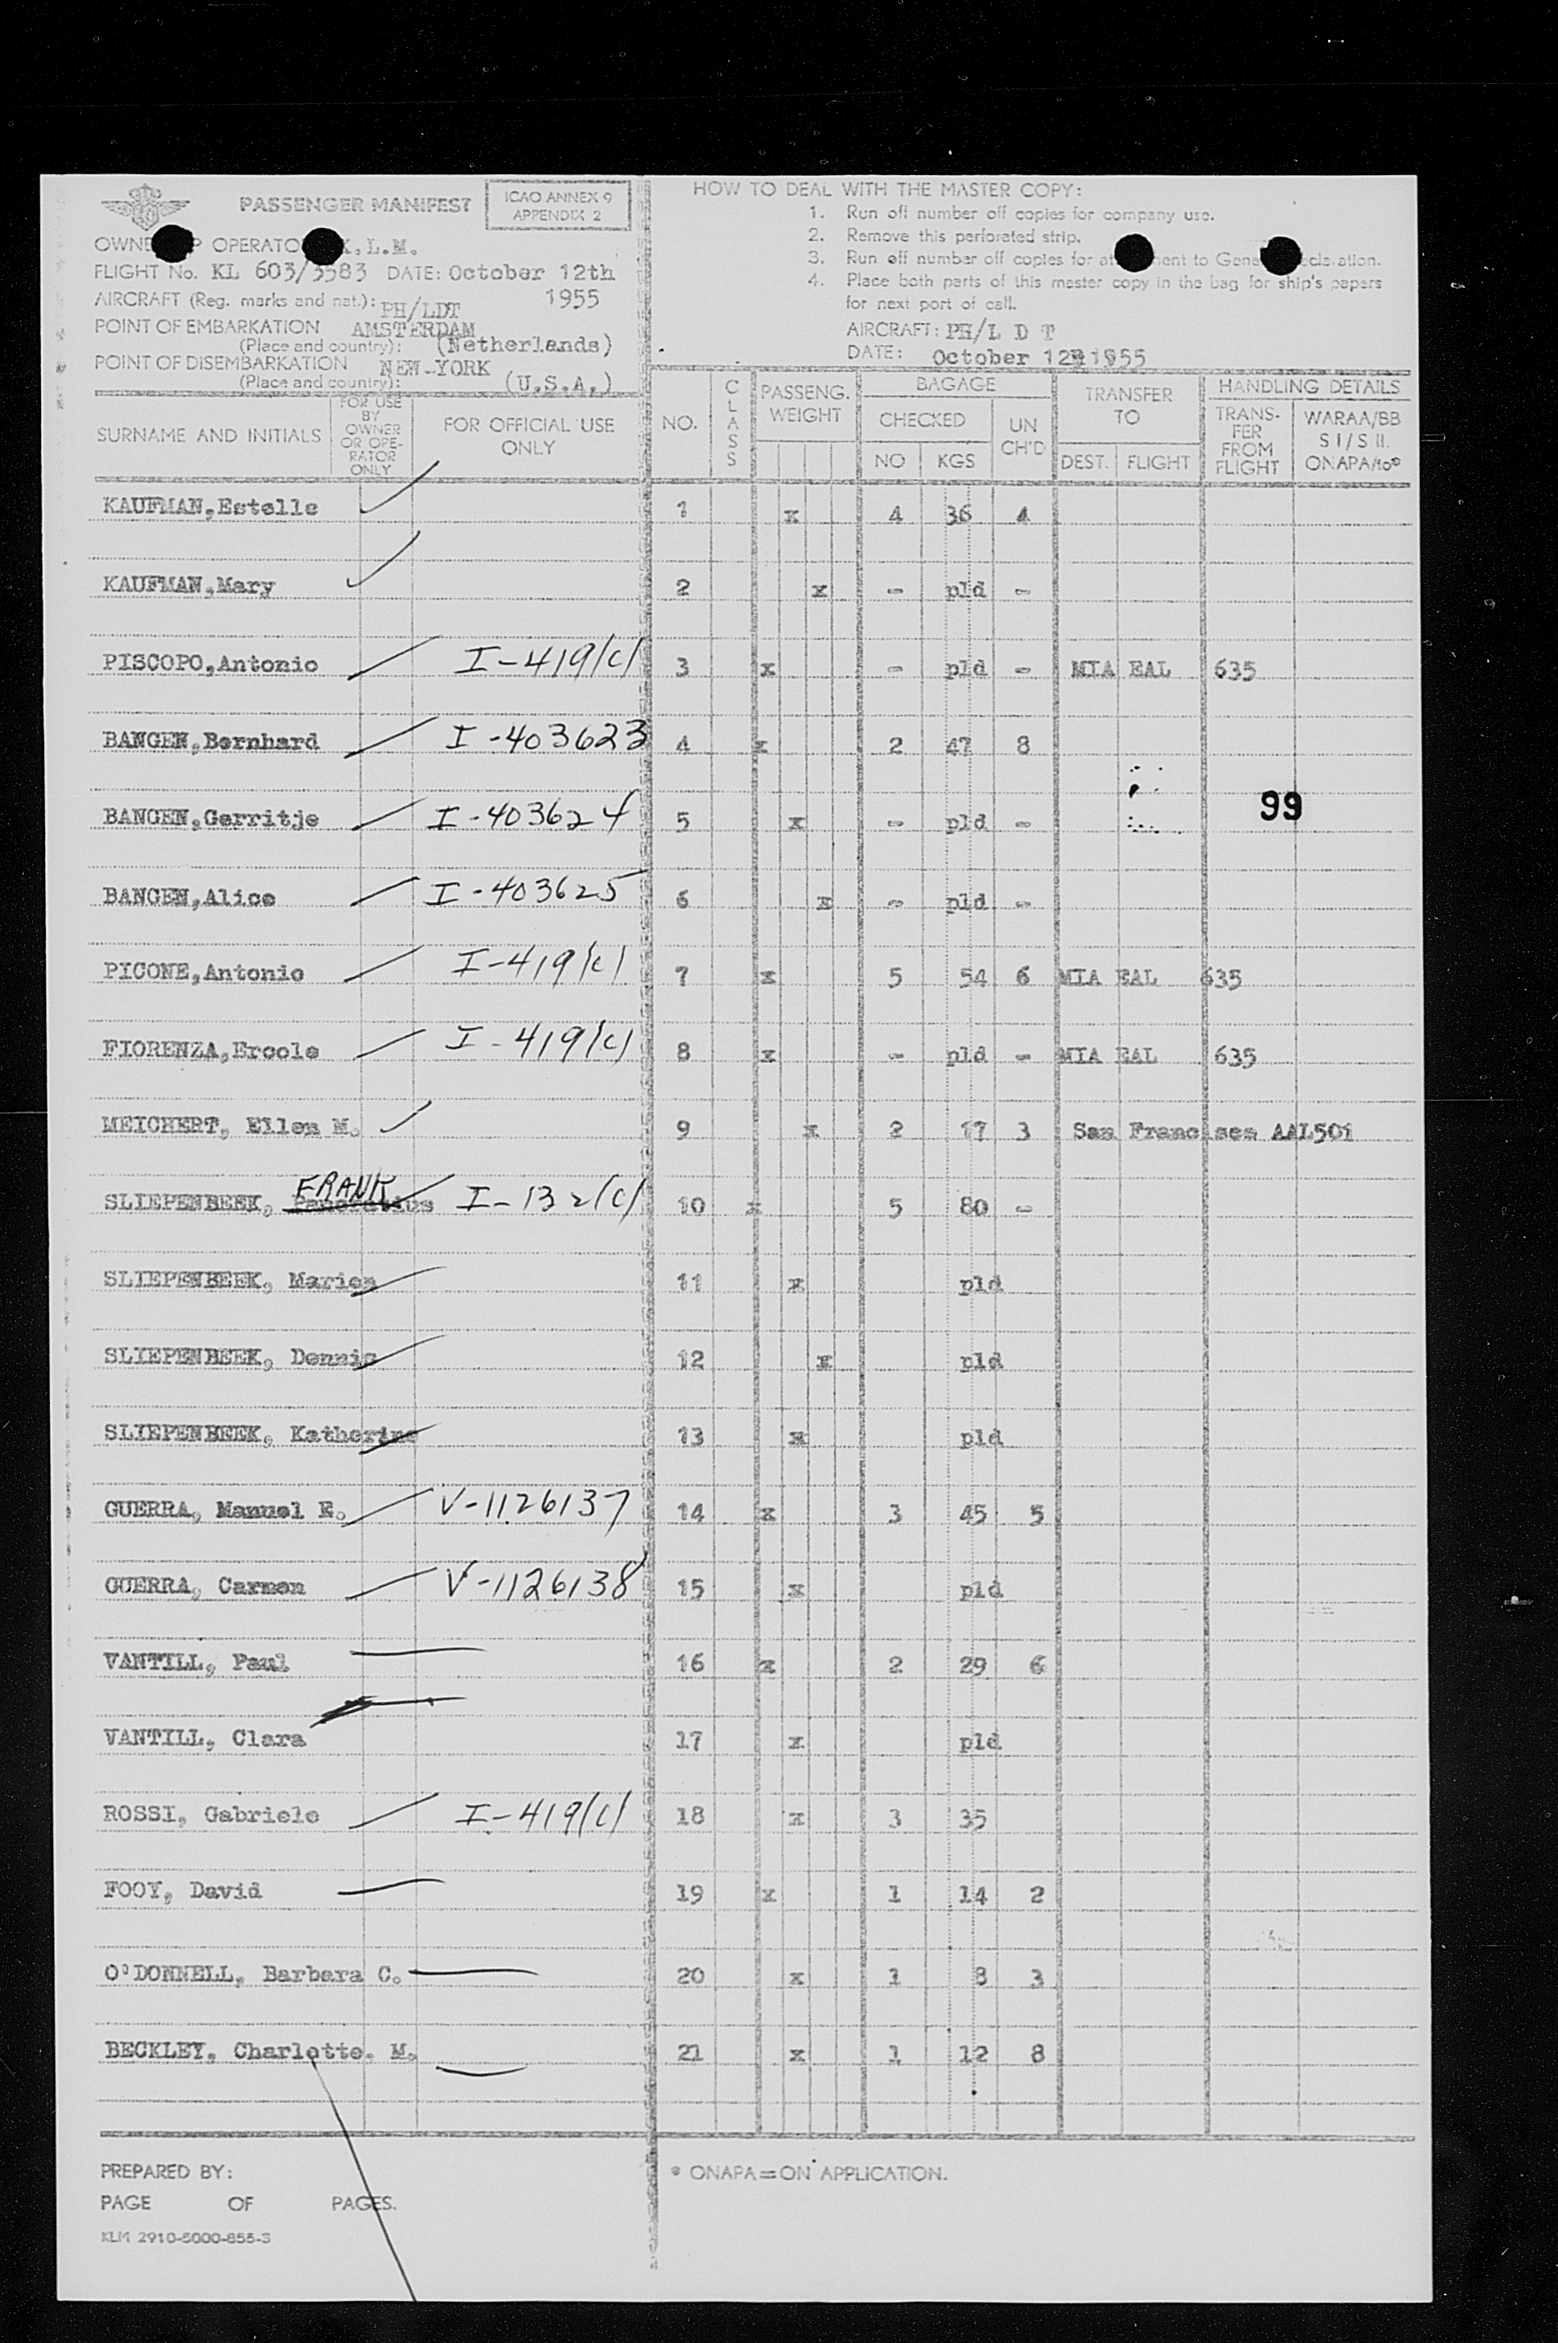 PASSENGER MANIFEST
ICAO ANNEX 9
APPENDIX 2
OPERATO K.L.M.
FLIGHT No. KL 603/3583 DATE: October 12th
1955
AIRCRAFT (Reg. marks and nat.): PH/LDT
POINT OF EMBARKATION AMSTERDAM
(Place and country): (Netherlands)
POINT OF DISEMBARKATION NEW-YORK
(Place and country): (U.S.A.)
HOW TO DEAL WITH THE MASTER COPY:
1. Run off number off copies for company use.
2. Remove this perforated strip.
3. Run off number off copies for to
4. Place both parts of this master copy in the bag for ship's papers
for next port of call.
AIRCRAFT: PH/L D T
DATE: October 12 1955
SURNAME AND INITIALS
FOR USE
BY
OWNER
OR OPE-
RATOR
ONLY
FOR OFFICIAL USE
ONLY
NO.
CLASS
PASSENG.
WEIGHT
BAGAGE
CHECKED
NO KGS
UN
CH'D
TRANSFER
TO
DEST. FLIGHT
HANDLING DETAILS
TRANS-
FER
FROM
FLIGHT
WARAA/BB
S I/S II.
ONAPA/to*
KAUFMAN,Estelle 1 x 4 36 4
KAUFMAN,Mary 2 x - pld -
PISCOPO,Antonio I-419(c) 3 x - pld - MIA EAL 635
BANGEN,Bernhard I-403623 4 x 2 47 8
BANGEN,Gerritje I-403624 5 x - pld -
99
BANGEN,Alice I-403625 6 x - pld -
PICONE,Antonio I-419(c) 7 x 5 54 6 MIA EAL 635
FIORENZA,Ercole I-419(c) 8 x - pld - MIA EAL 635
MEICHERT, Ellen M. 9 x 2 17 3 San Francisco AAL501
FRANK
SLIEPENBEEK, Pancratius I-132(c) 10 x 5 80 -
SLIEPENBEEK, Marion 11 x pld
SLIEPENBEEK, Dennis 12 x pld
SLIEPENBEEK, Katherine 13 x pld
GUERRA, Manuel E. V-1126137 14 x 3 45 5
GUERRA, Carmen V-1126138 15 x pld
VANTILL, Paul 16 x 2 29 6
VANTILL, Clara 17 x pld
ROSSI, Gabriele I-419(c) 18 x 3 35
FOOY, David 19 x 1 14 2
O'DONNELL, Barbara C. 20 x 1 8 3
BECKLEY, Charlotte. M. 21 x 1 12 8
PREPARED BY:
PAGE OF PAGES.
KLM 2910-5000-855-S
* ONAPA=ON APPLICATION.